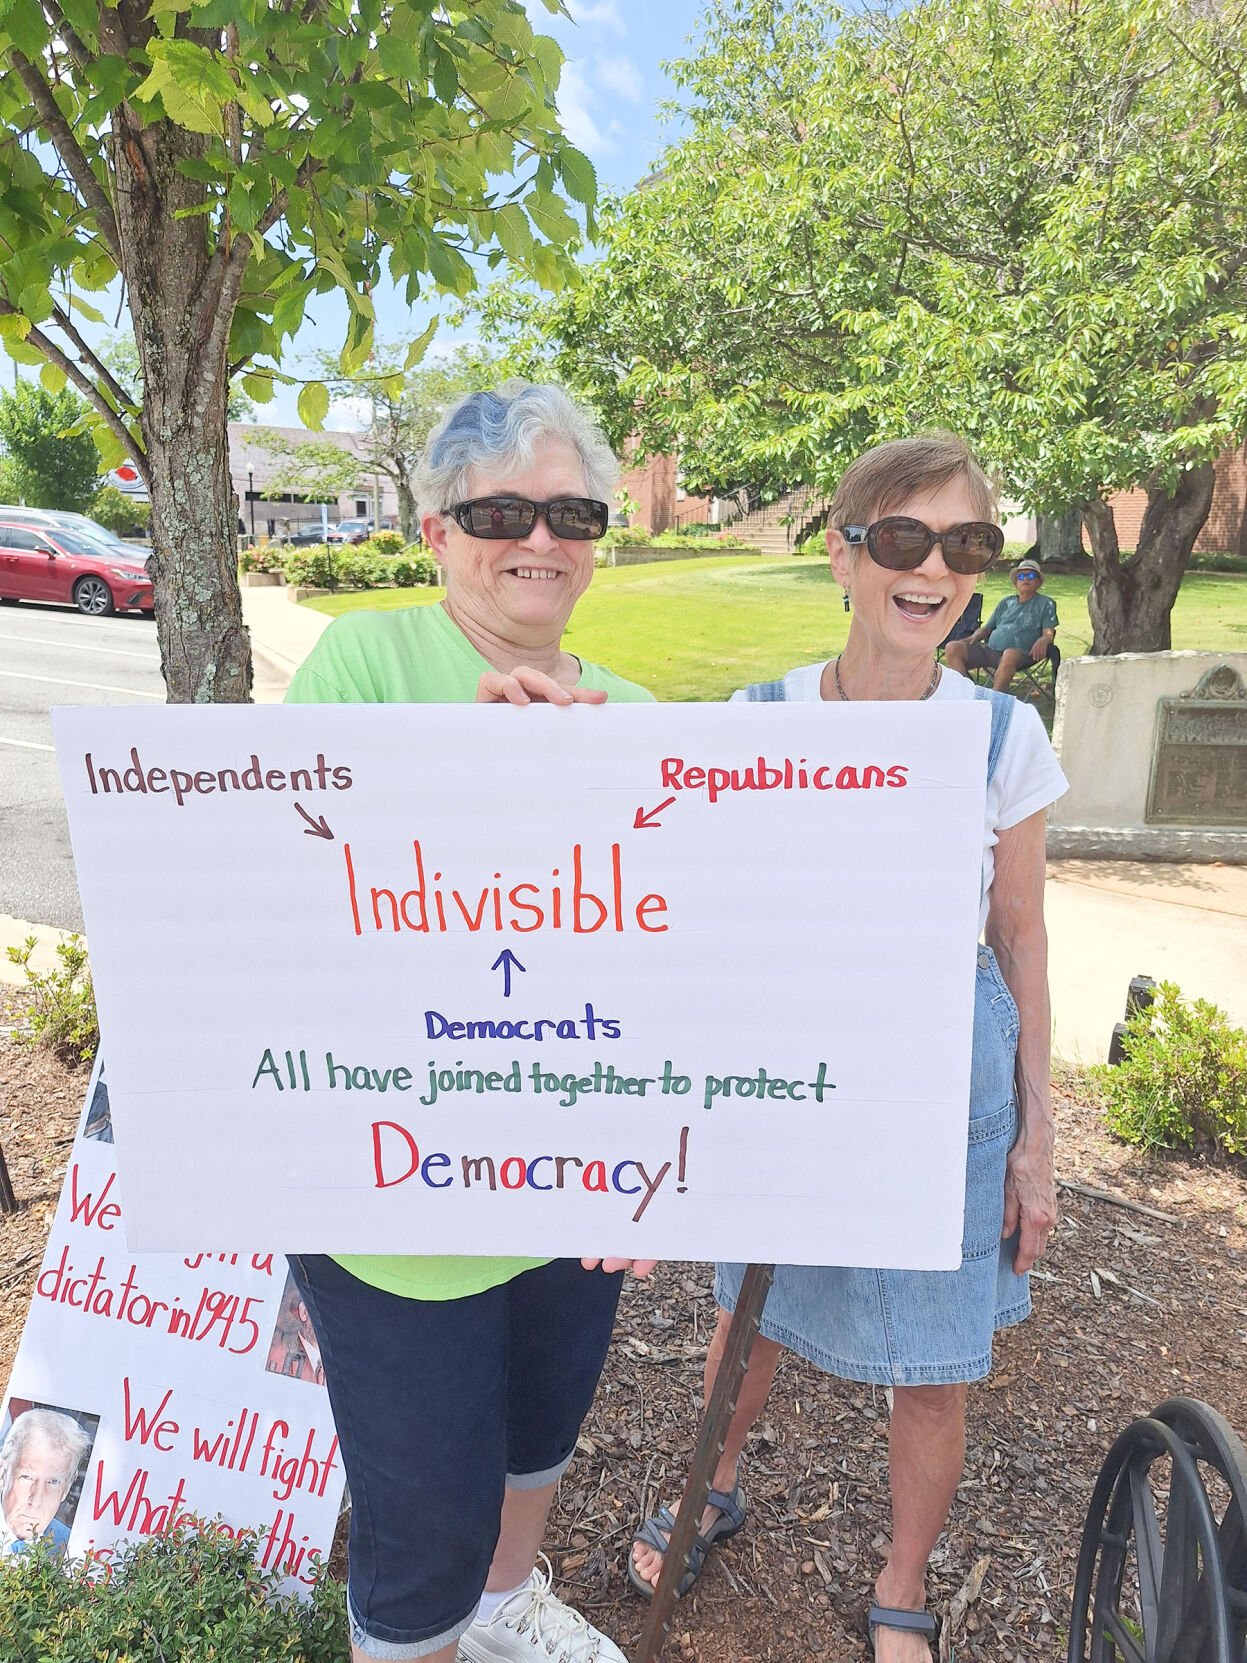 Independents
Republicans
Indivisible
Democrats
All have joined together to protect
Democracy!
We
dictator in 1945
We will fight
Whatever this
is